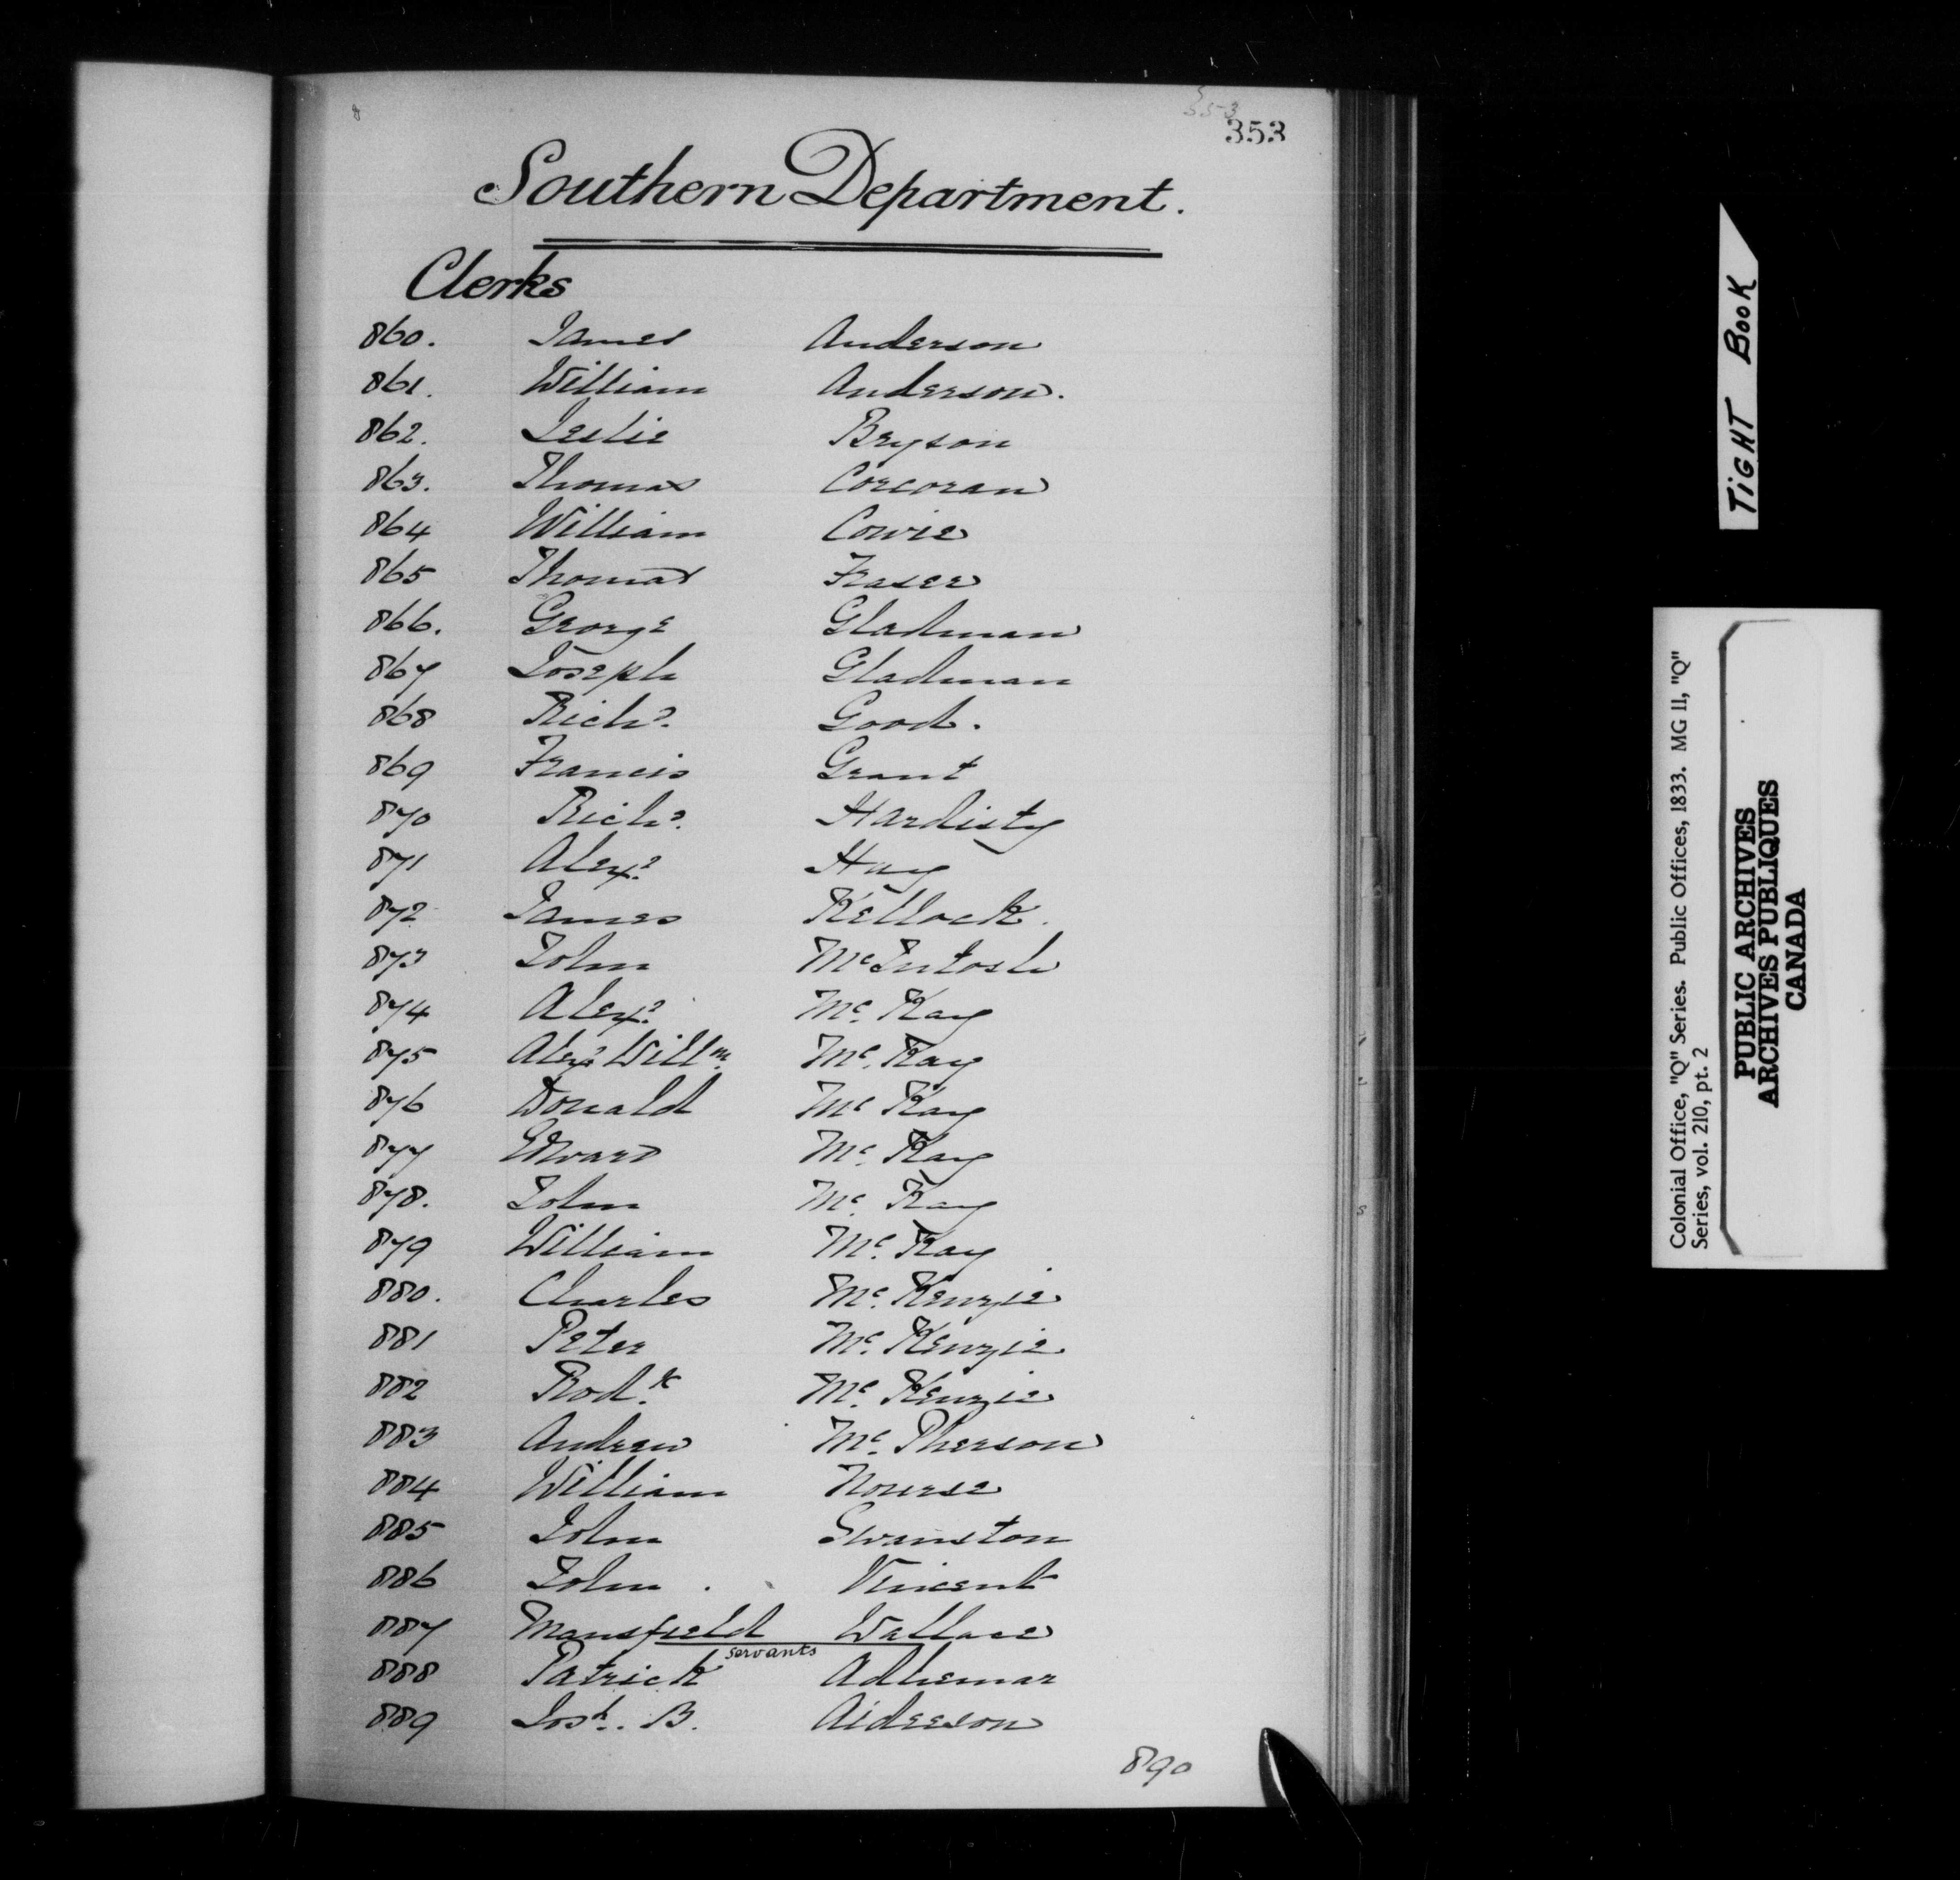 353
353
Southern Department.
Clerks
860. James Anderson
861. William Anderson.
862. Leslie Bryson
863. Thomas Corcoran
864 William Cowie
865 Thomas Fraser
866. George Gladman
867 Joseph Gladman
868 Richd. Good.
869 Francis Grant
870 Richd. Hardisty
871 Alexr. Hay
872 James Kellock.
873 John McIntosh
874 Alexr. Mc. Kay
875 Alexr. Willm. Mc. Kay
876 Donald Mc. Kay
877 Edward Mc. Kay
878. John Mc. Kay
879 William Mc. Kay
880. Charles Mc. Kenzie
881 Peter Mc. Kenzie
882 Rodk. Mc. Kenzie
883 Andrew Mc. Pherson
884 William Nourse
885 John Swanston
886 John . Vincent
887 Mansfield Wallace
servants
888 Patrick Adhemar
889 Josh. B. Aiderson
890
TIGHT BOOK
Colonial Office, "Q" Series. Public Offices, 1833. MG 11, "Q"
Series, vol. 210, pt. 2
PUBLIC ARCHIVES
ARCHIVES PUBLIQUES
CANADA